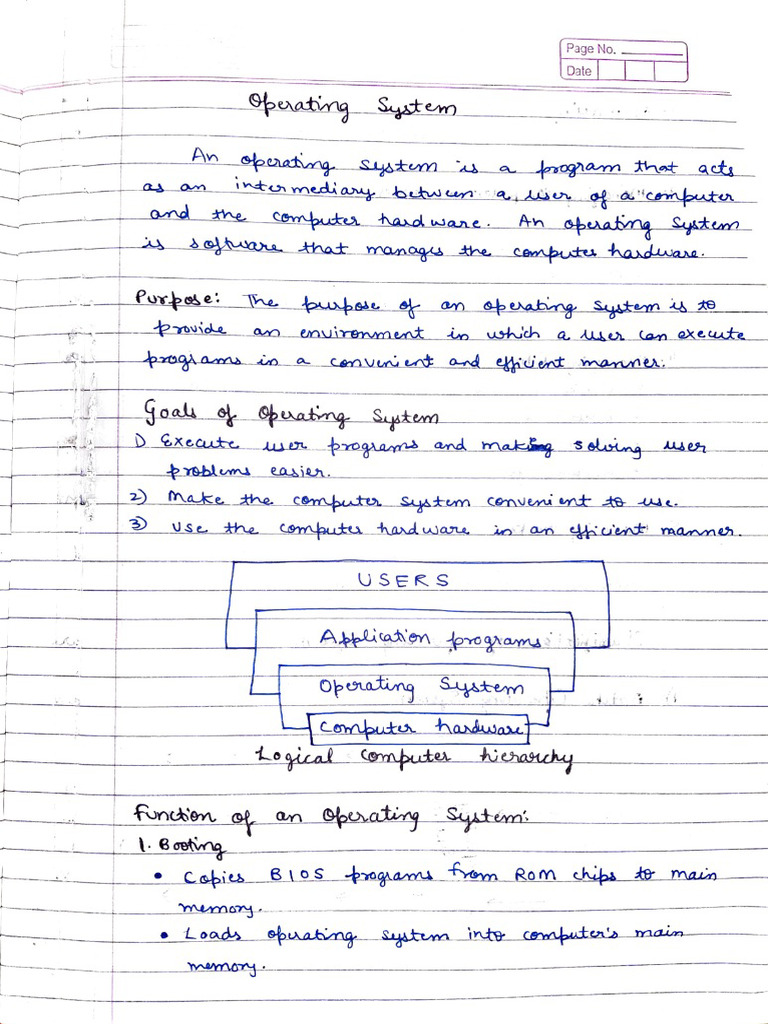 Page No.
Date
Operating System
An operating system is a program that acts
as an intermediary between a user of a computer
and the computer hardware. An operating system
is software that manages the computer hardware.
Purpose: The purpose of an operating system is to
provide an environment in which a user can execute
programs in a convenient and efficient manner.
Goals of Operating System
1) Execute user programs and making solving user
problems easier.
2) Make the computer system convenient to use.
3) Use the computer hardware in an efficient manner.
USERS
Application programs
Operating System
Computer hardware
Logical computer hierarchy
Function of an Operating System:
1. Booting
• Copies BIOS programs from ROM chips to main
memory.
• Loads operating system into computer's main
memory.